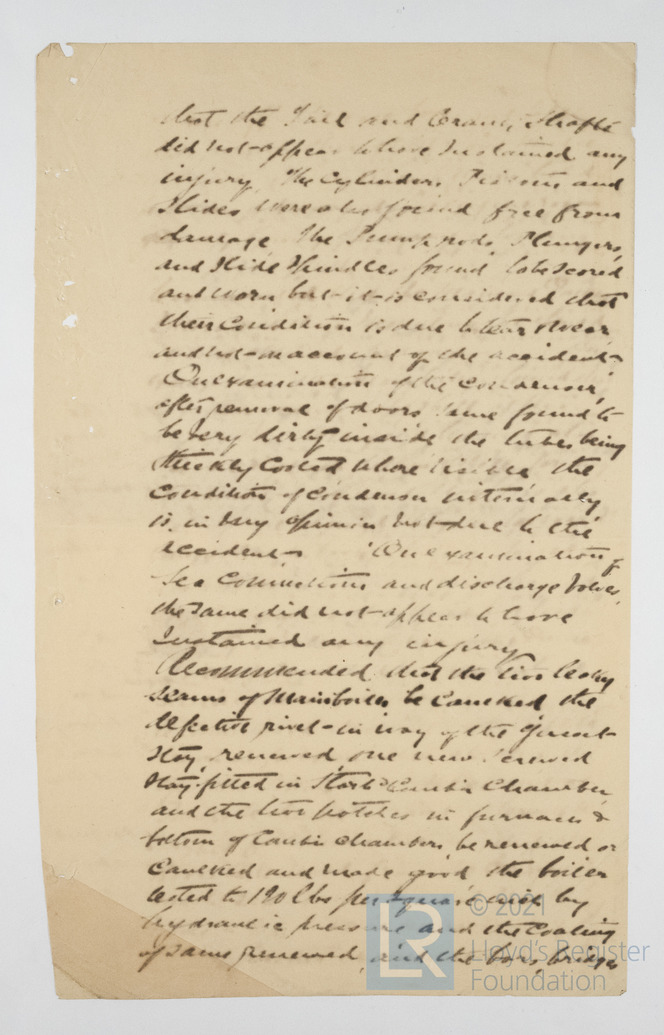 that the Tail and Crank Shafts
did not appear to have Sustained any
injury. The Cylinders, Pistons and
Slides were also found free from
damage. The Pump rods, Plungers,
and Slide Spindles found to be Scored
and worn but it is considered that
their Condition is due to tear & wear
and not on account of the accident
On examination of the Condenser,
after removal of doors same found to
be very dirty inside the tubes being
thickly Coated where visible the
Condition of Condenser internally
is in my opinion not due to the
accident On examination of
Sea Connections and discharge Valves,
the same did not appear to have
Sustained any injury
Recommended that the two leaky
seams of Main boiler be Caulked the
defective rivet in way of the Gusset
Stay renewed one new Screwed
Stay fitted in Starbd Combn Chamber
and the two patches in furnaces &
bottom of Combn chambers be renewed or
Caulked and made good the boiler
tested to 190 lbs per square inch by
hydraulic pressure and the Coating
of same renewed, and the bars, bridges
© 2021
LR
Lloyd's Register
Foundation